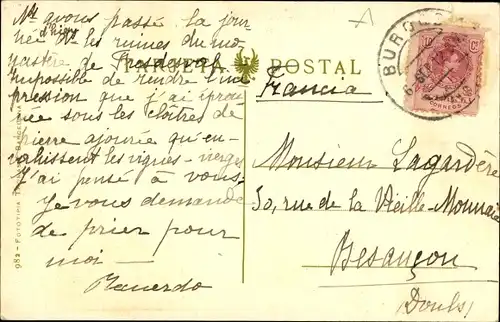 Nous avons passé la jour-
née d'hier ds les ruines du mo-
nastère de Fresdelval
Impossible de rendre l'im-
pression que j'ai éprou-
vée sous les cloîtres de
pierre ajourée qu'en-
vahissent les vignes-vierges
J'ai pensé à vous
Je vous demande
de prier pour
moi —
Recuerdo
POSTAL
Francia
BURGOS
CORREOS
Monsieur Lagardère
50, rue de la Vieille-Monnaie
Besançon
(Doubs)
982 - FOTOTIPIA